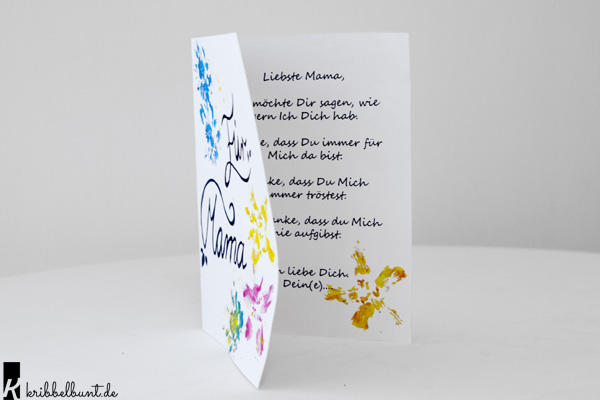 Für
Mama
Liebste Mama,
möchte Dir sagen, wie
Ich Dich hab.
dass Du immer für
Mich da bist.
dass Du Mich
tröstest.
dass du Mich
aufgibst.
liebe Dich.
Dein(e)....
kribbelbunt.de